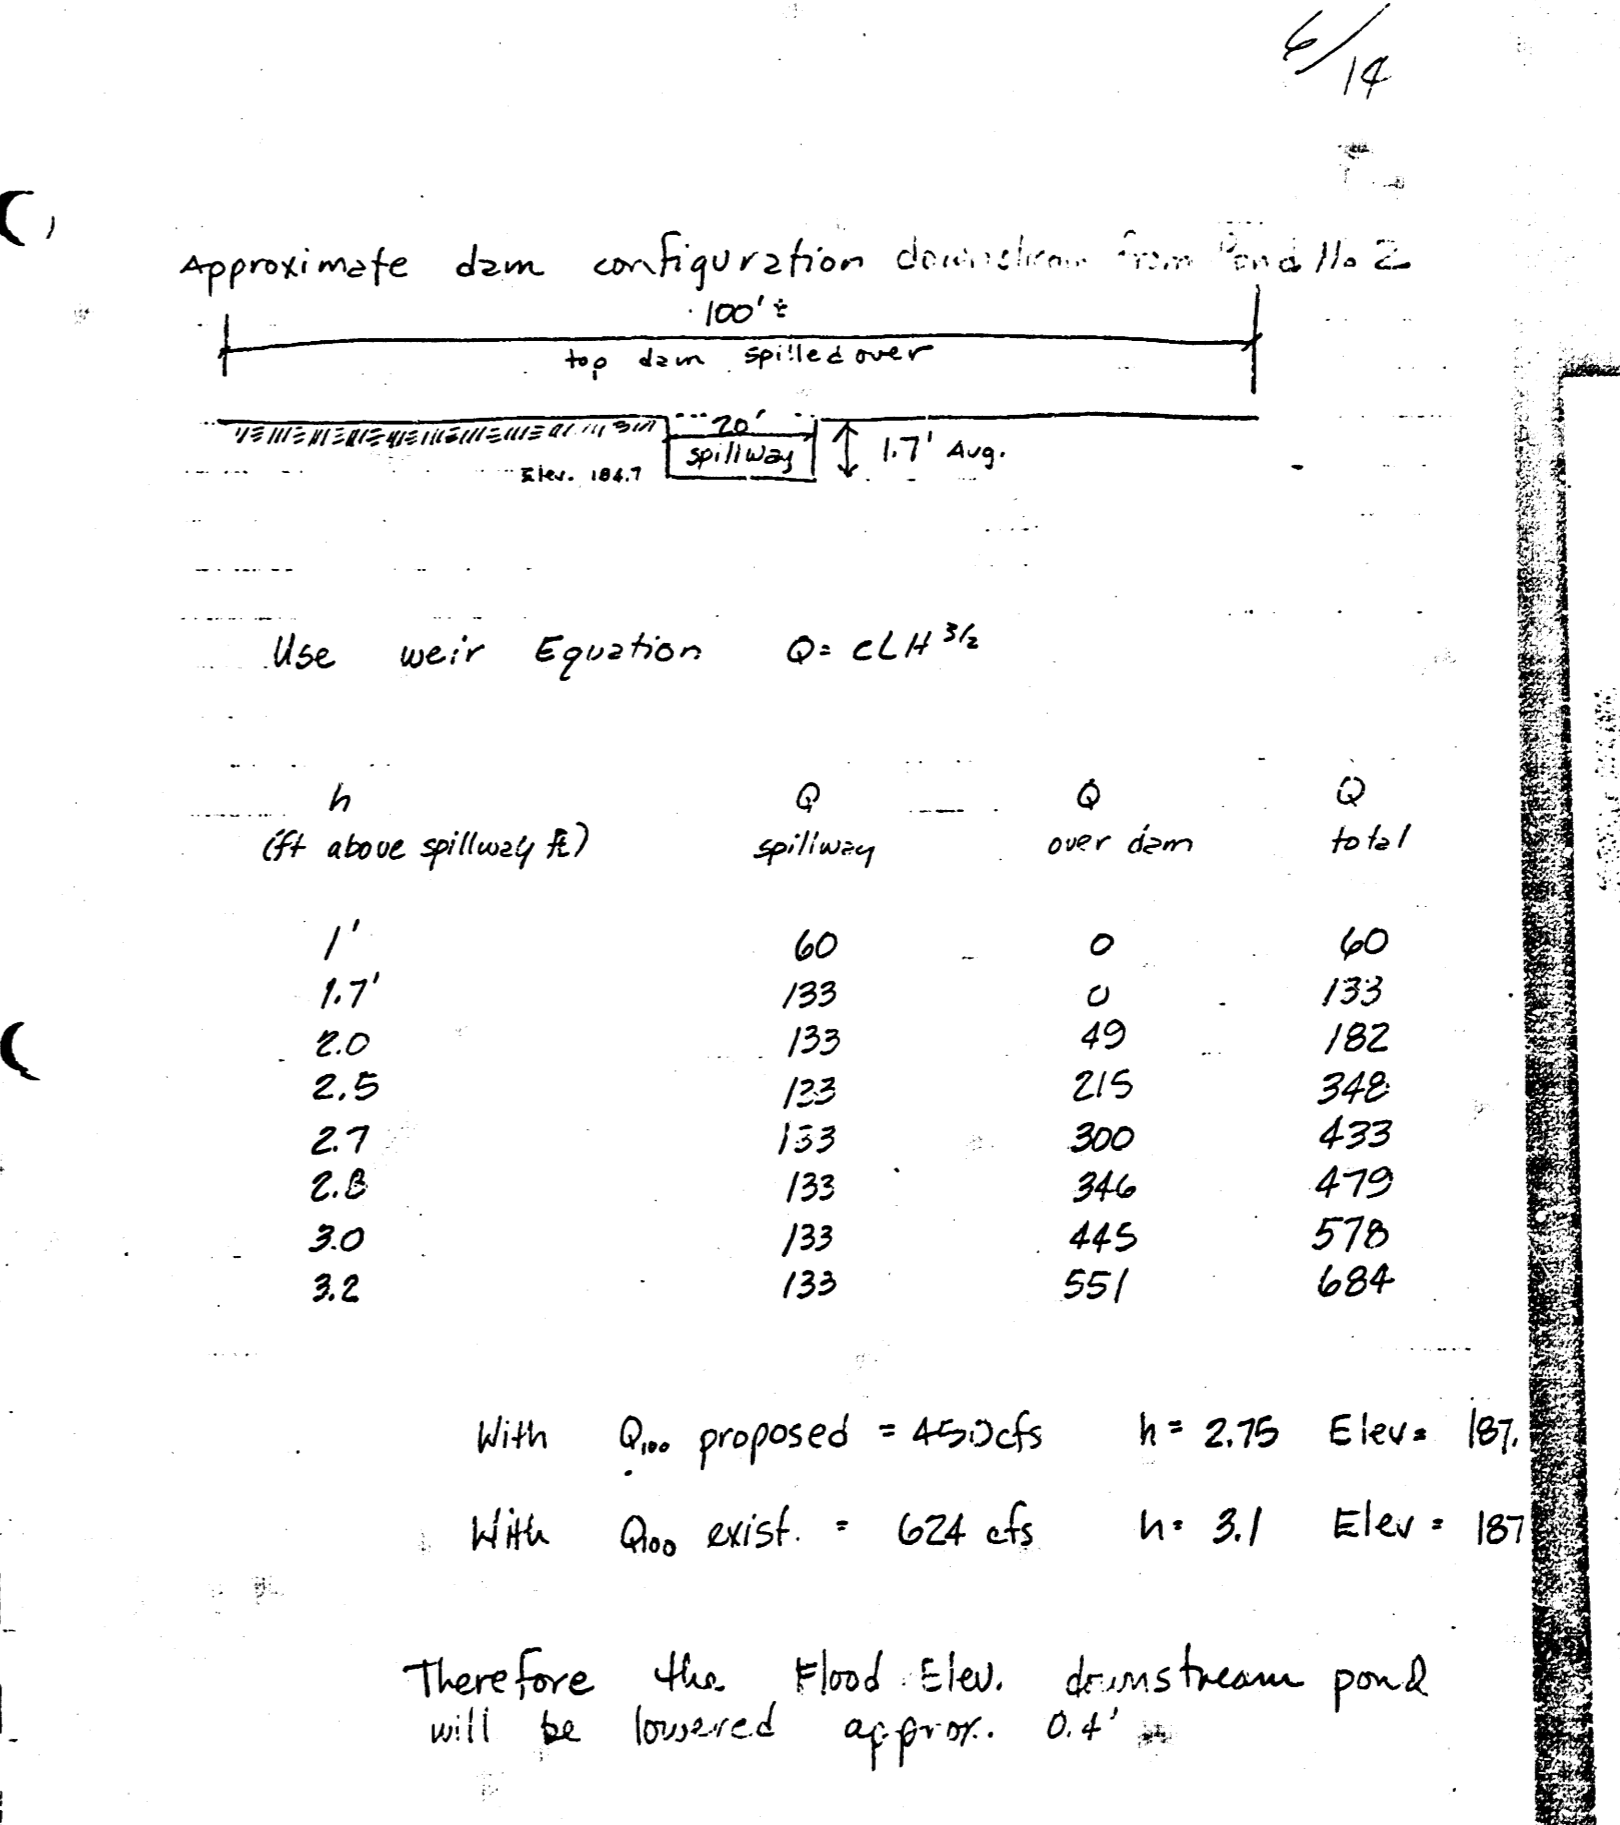 6/14
Approximate dam configuration downstream from Pond No 2
100' ±
top dam spilled over
20'
spillway
1.7' Avg.
Elev. 184.7
Use weir Equation Q= CLH 3/2
h Q Q Q
(ft above spillway ft) spillway over dam total
1' 60 0 60
1.7' 133 0 133
2.0 133 49 182
2.5 133 215 348
2.7 133 300 433
2.8 133 346 479
3.0 133 445 578
3.2 133 551 684
With Q100 proposed = 450cfs h= 2.75 Elev= 187.
With Q100 exist. = 624 cfs h= 3.1 Elev = 187
Therefore the Flood Elev. downstream pond
will be lowered approx. 0.4'